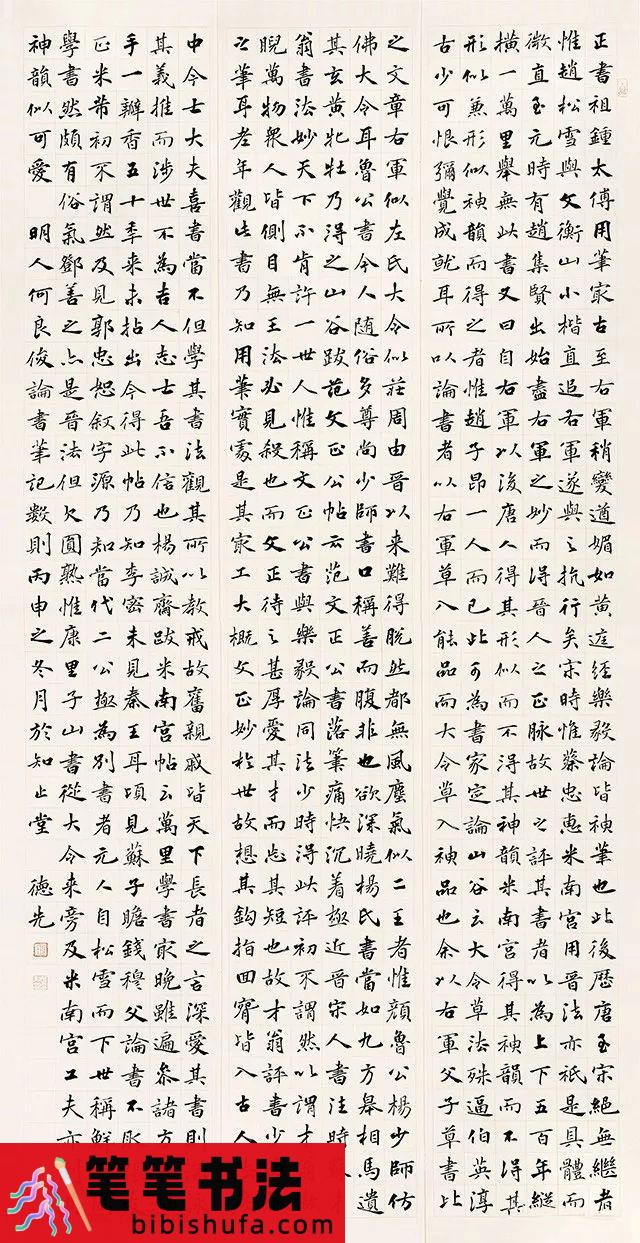 正書祖鍾太傅用筆㝡古至右軍稍變遒媚如黃庭經樂毅論皆神筆也此後歷唐至宋絕無繼者
惟趙松雪與文衡山小楷直追右軍遂與之抗行矣宋時惟蔡忠惠米南宮用晉法亦祇是具體而
微直至元時有趙集賢出始盡右軍之妙而得晉人之正脉故世之評其書者以為上下五百年縱
橫一萬里舉無此書又曰自右軍以後唐人得其形似而不得其神韻米南宮得其神韻而不得其
形似兼形似神韻而得之者惟趙子昂一人而已此可為書家定論山谷云大令草法殊逼伯英淳
古少可恨彌覺成就耳所以論書者以右軍草入能品而大令草入神品也余以右軍父子草書比
之文章右軍似左氏大令似莊周由晉以来難得脫然都無風塵氣似二王者惟顏魯公楊少師仿
佛大令耳魯公書今人隨俗多尊尚少師書口稱善而腹非也欲深曉楊氏書當如九方皋相馬遺
其玄黃牝牡乃得之山谷跋范文正公帖云范文正公書落筆痛快沉着極近晉宋人書法時
翁書法妙天下不肯許一世人惟稱文正公書與樂毅論同法少時得此評初不謂然以謂才
睨萬物衆人皆側目無王法必見殺也而文正待之甚厚愛其才而忘其短也故才翁評書少
公筆耳老年觀此書乃知用筆實處是其㝡工大概文正妙於世故想其鈎指回腕皆入古人
中今士大夫喜書當不但學其書法觀其所以教戒故舊親戚皆天下長者之言深愛其書則
其義推而涉世不為吉人志士吾不信也楊誠齋跋米南宮帖云萬里學書㝡晚雖遍參諸方
手一瓣香五十年来未拈出今得此帖乃知李密未見秦王耳頃見蘇子瞻錢穆父論書不取
正米芾初不謂然及見郭忠恕叙字源乃知當代二公極為別書者元人自松雪而下世稱鮮
學書然頗有俗氣鄧善之亦是晉法但欠圓熟惟康里子山書從大令来旁及米南宮工夫亦
神韻似可愛 明人何良俊論書筆記數則丙申之冬月於知止堂 德先
笔笔书法
bibishufa.com